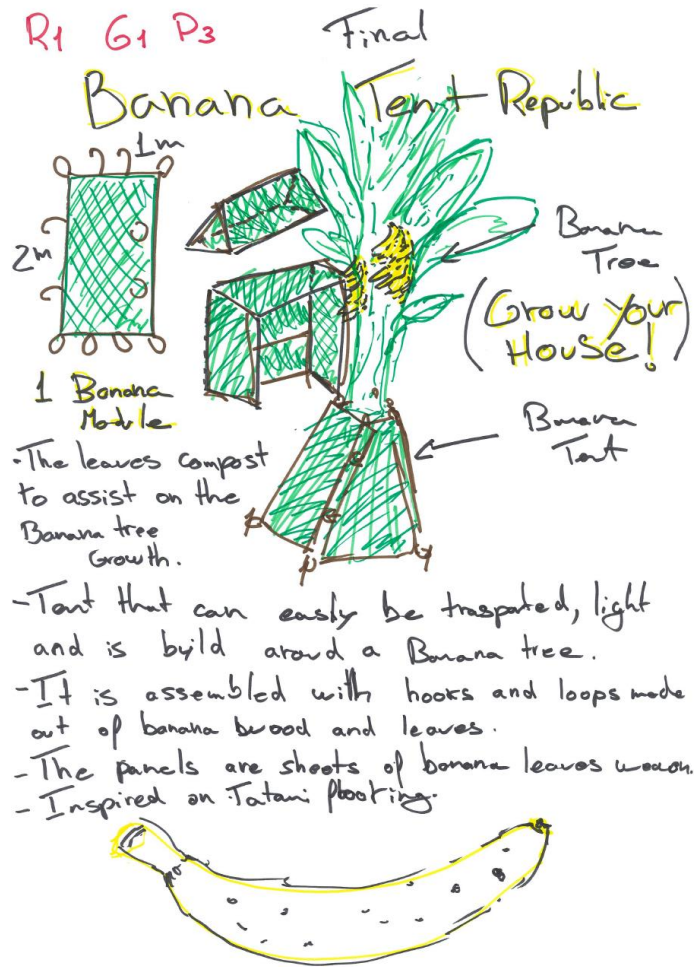 R1 G1 P3
Final
Banana Tent Republic
1m
2m
1 Banana
Module
Banana
Tree
(Grow your
House!)
Banana
Tent
·The leaves compost
to assist on the
Banana tree
Growth.
-Tent that can easly be traspated, light
and is build aroud a Banana tree.
-It is assembled with hooks and loops made
out of banana bwood and leaves.
-The panels are sheets of banana leaves
-Inspired on Tatami